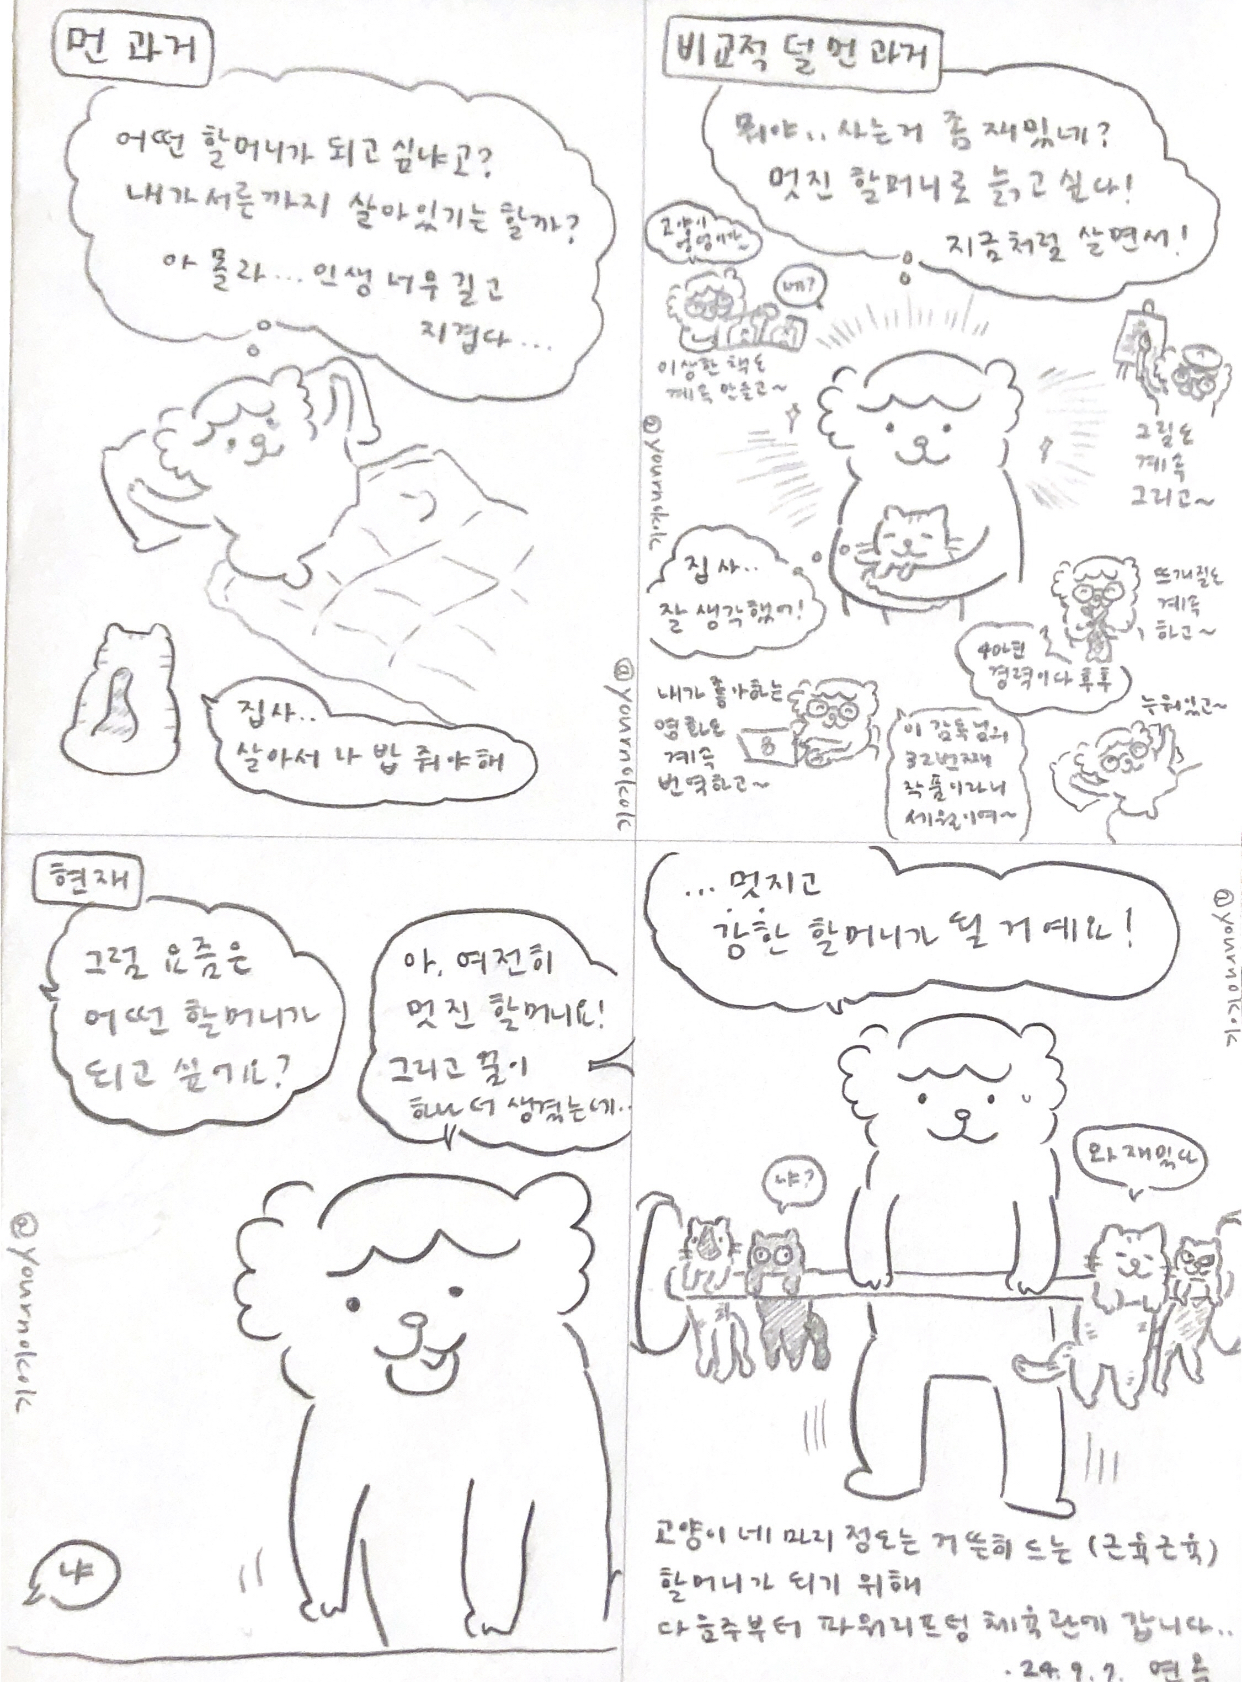 먼 과거
어떤 할머니가 되고 싶냐고?
내가 서른까지 살아있기는 할까?
아 몰라... 인생 너무 길고
지겹다...
집사..
살아서 나 밥 줘야해
@yournokolk
비교적 덜 먼 과거
뭐야.. 사는거 좀 재밌네?
멋진 할머니로 늙고 싶다!
지금처럼 살면서!
고양이
네?
이상한 책도
계속 만들고~
그림도
계속
그리고~
@yournokolk
집사..
잘 생각했어!
뜨개질도
계속
하고~
40년
경력이다 후후
내가 좋아하는
영화도
계속
번역하고~
이 감독님의
32번째
작품이라니
세월이여~
누워있고~
현재
그럼 요즘은
어떤 할머니가
되고 싶어요?
아, 여전히
멋진 할머니요!
그리고 꿈이
하나 더 생겼는데..
@yournokolk
냐
... 멋지고
강한 할머니가 될 거예요!
@yournokolk
냐?
와 재밌다
고양이 네 마리 정도는 거뜬히 드는 (근육근육)
할머니가 되기 위해
다음주부터 파워리프팅 체육관에 갑니다..
.24.9.7. 연옥